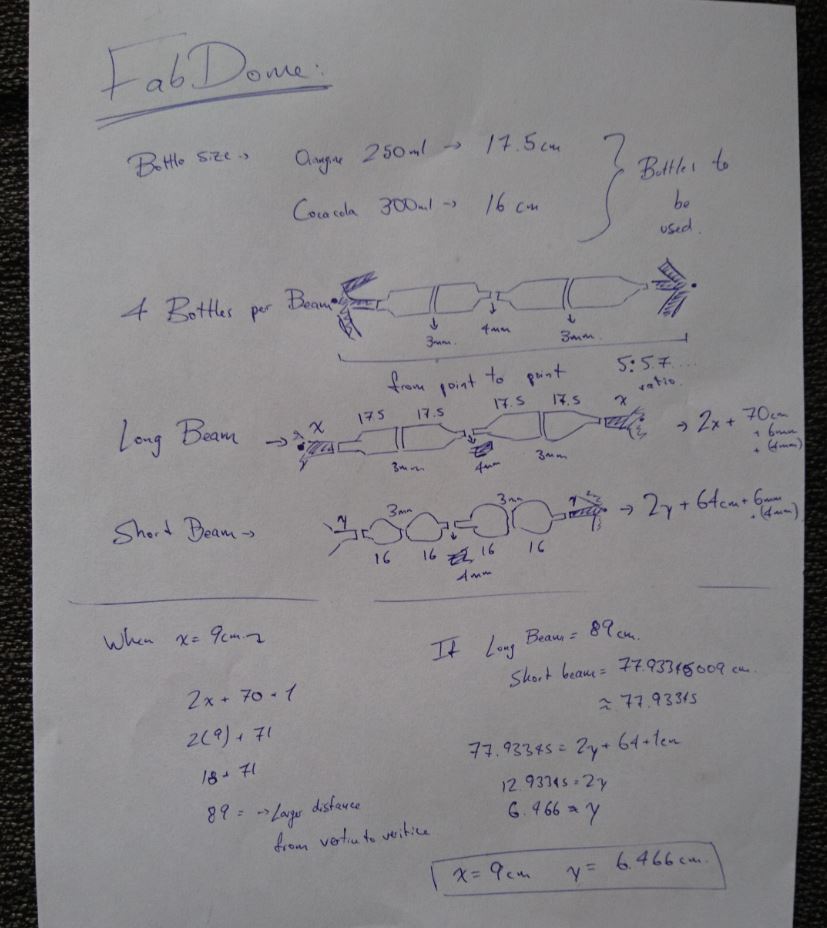 FabDome:
Bottle size → Orangina 250ml → 17.5 cm
Cocacola 300ml → 16 cm
Bottles to
be
used.
4 Bottles per Beam
3mm. 4mm 3mm.
from point to point
5:5.7....
ratio.
Long Beam →
x 17.5 17.5 17.5 17.5 x
3mm 4mm 3mm
→ 2x + 70cm
+ 6mm
+ (4mm)
Short Beam →
y 3mm 3mm y
16 16 16 16
4mm
→ 2y + 64cm + 6mm
+ (4mm)
When x = 9cm
2x + 70 + 1
2(9) + 71
18 + 71
89 = → Larger distance
from vertice to vertice
If Long Beam = 89 cm.
Short beam = 77.93345009 cm.
≈ 77.93345
77.93345 = 2y + 64 + 1cm
12.93345 = 2y
6.466 = y
x = 9cm y = 6.466cm.